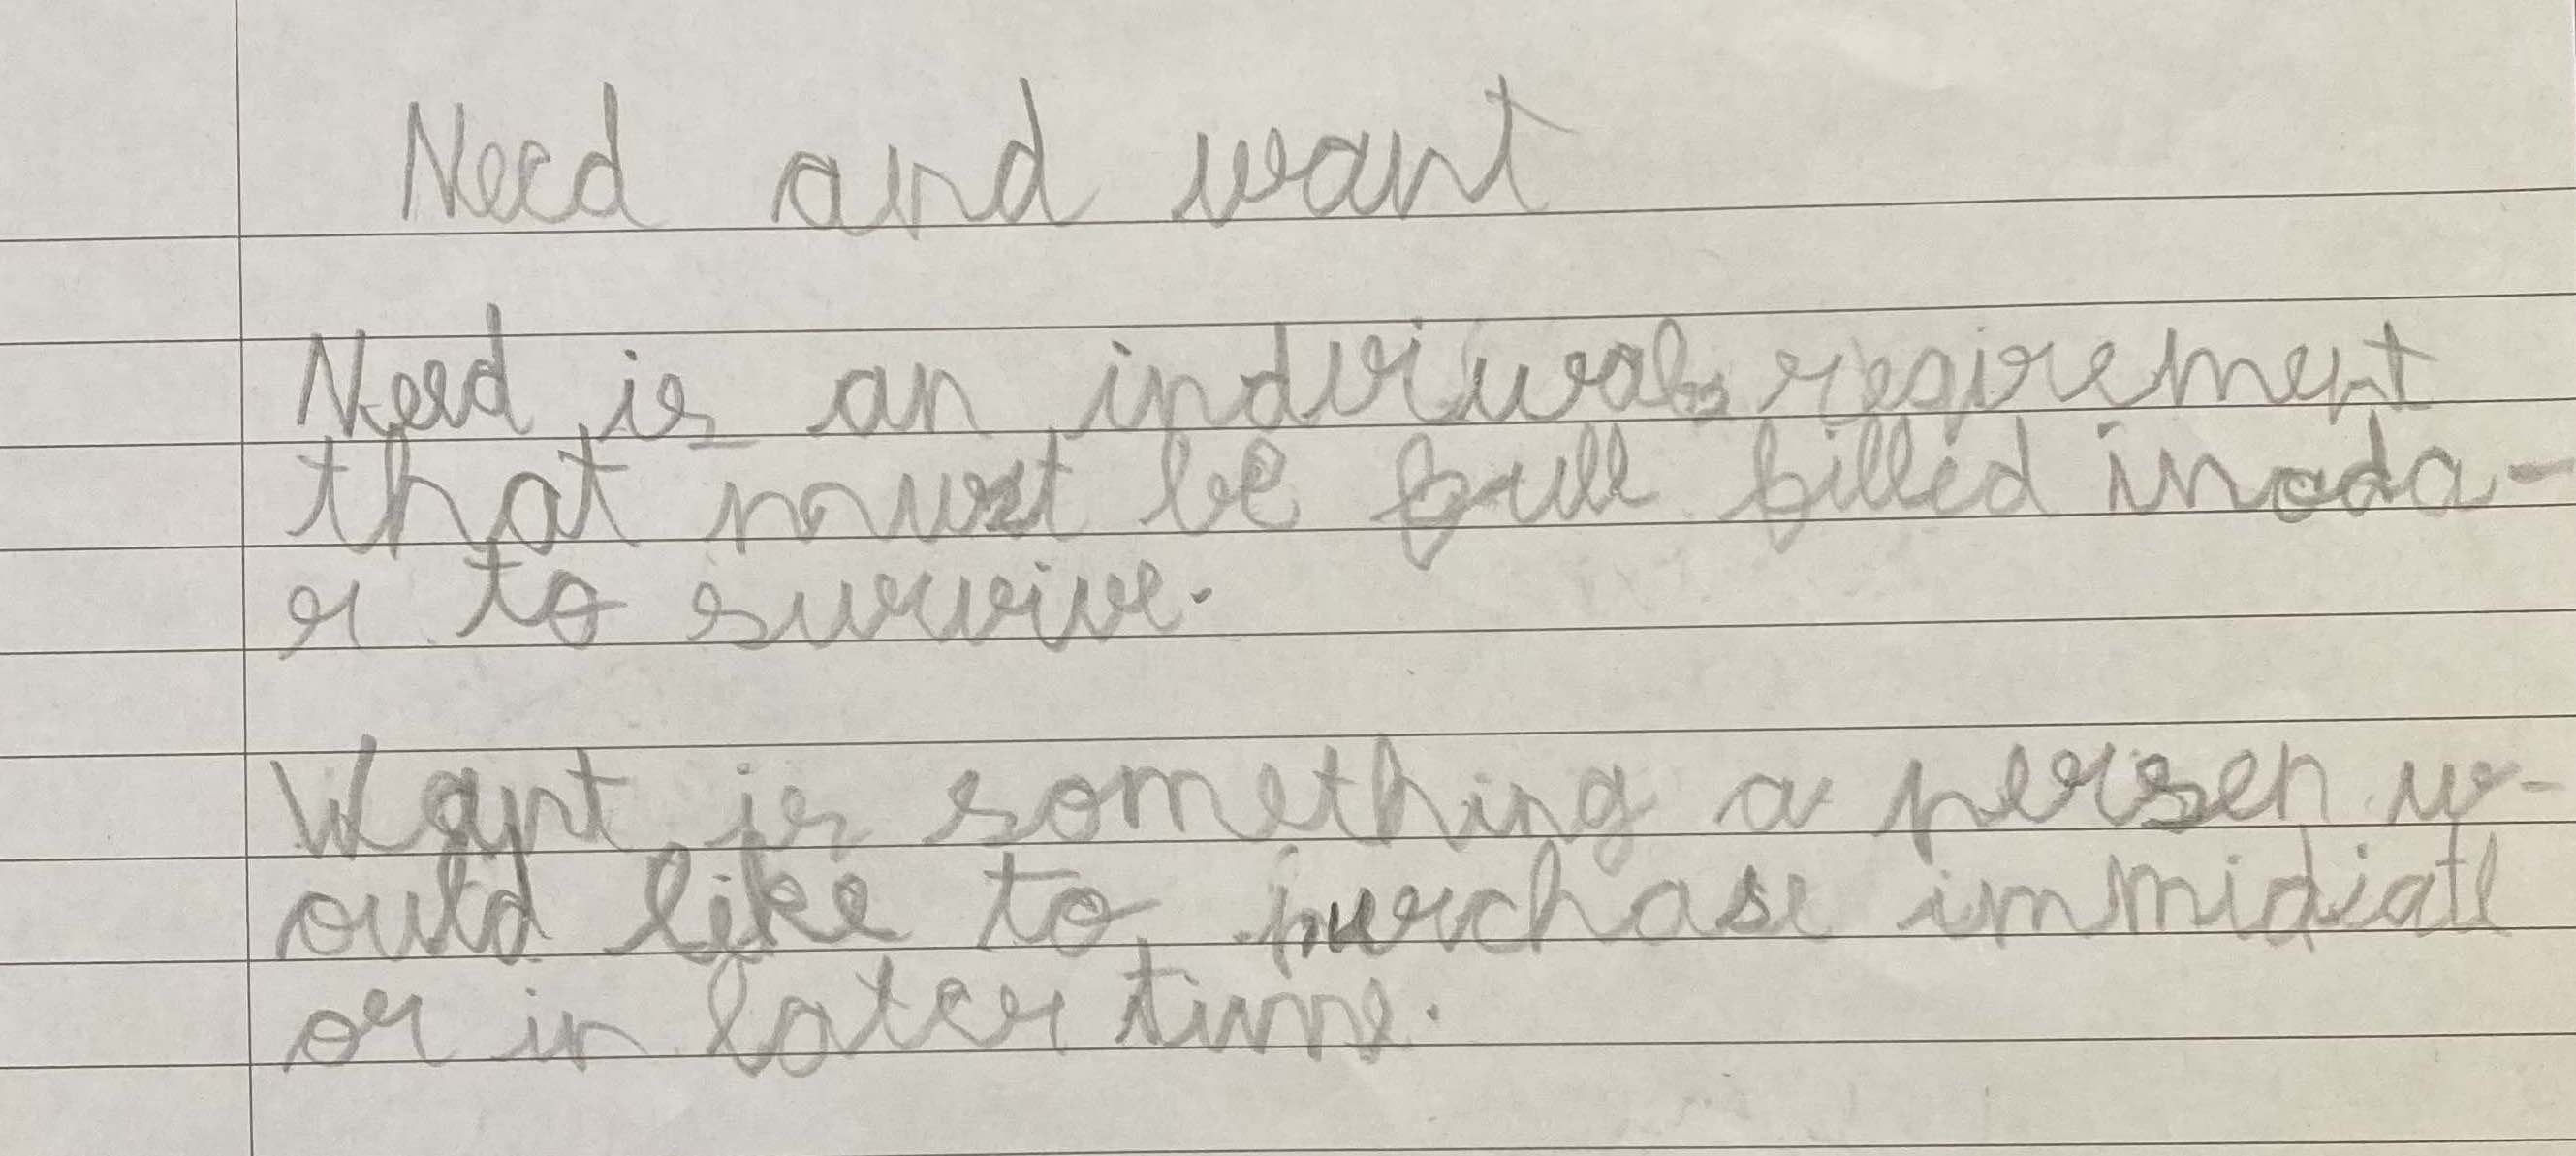 Need and want
Need is an indiviuals reqirement
that must be full filled inoda-
r to survive.
Want is something a persen w-
ould like to purchase immidiatl
or in later time.